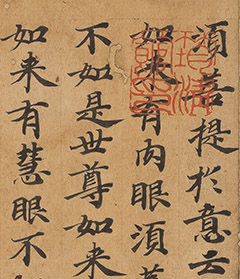 須菩提於意云
如来有肉眼須菩
不如是世尊如来
如来有慧眼不